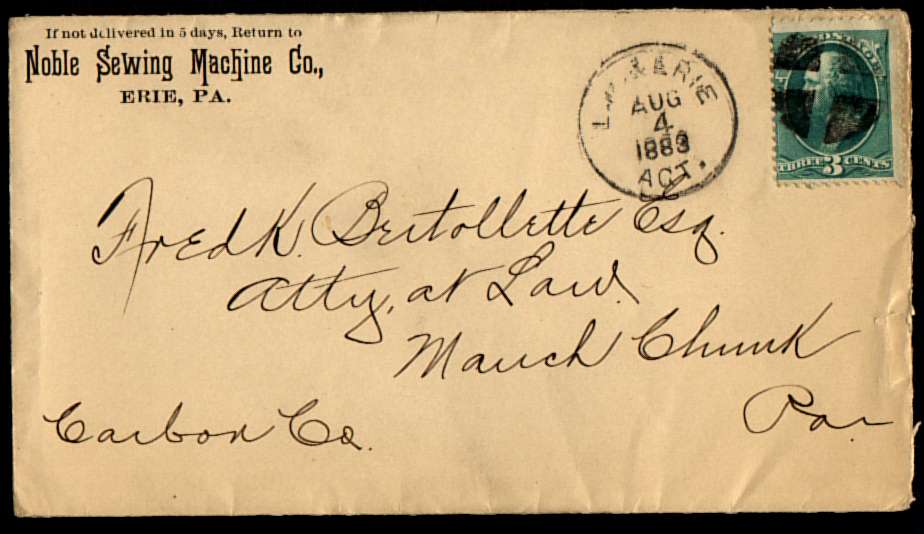 If not delivered in 5 days, Return to
Noble Sewing Machine Co.,
ERIE, PA.
& ERIE
AUG
4
1883
AGT.
POSTAGE
THREE 3 CENTS
Fred K. Bertollette Esq.
Atty, at Law.
Mauch Chunk
Carbon Co.
Pa.